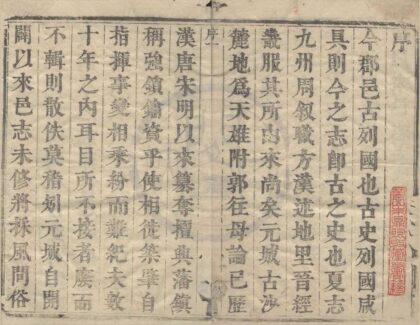 序
今郡邑古列國也古史列國咸
具則今之志卽古之史也夏志
九州周叙職方漢述地里晉經
畿服其所由來尚矣元城古沙
麓地爲天雄附郭往毋論已歷
序一
漢唐宋明以來纂奪擅興藩鎮
稱強鎖鑰資乎使相徙築肇自
指揮事變相乘紛而難紀夫數
十年之內耳目所不接者廢而
不輯則散佚莫稽矧元城自開
闢以來邑志未修將採風問俗